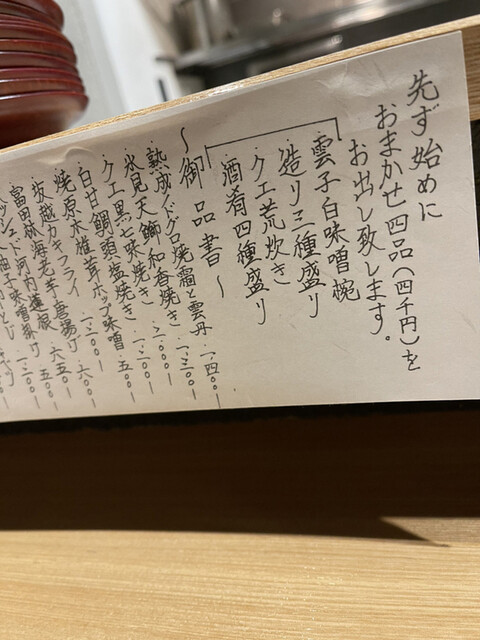 先ず始めに
おまかせ四品(四千円)を
お出し致します。
・雲子白味噌椀
・造り三種盛り
・クエ荒炊き
・酒肴四種盛り
〜御品書〜
・熟成ノドグロ焼霜と雲丹 一、四〇〇ー
・氷見天然鰤和香焼き 二、〇〇〇ー
・クエ黒七味焼き 一、三〇〇ー
・白甘鯛頭塩焼き
・焼原木椎茸ホップ味噌 五〇〇ー
・坂越カキフライ 一、二〇〇ー
富田林海老芋唐揚げ 六五〇ー
河内蓮根